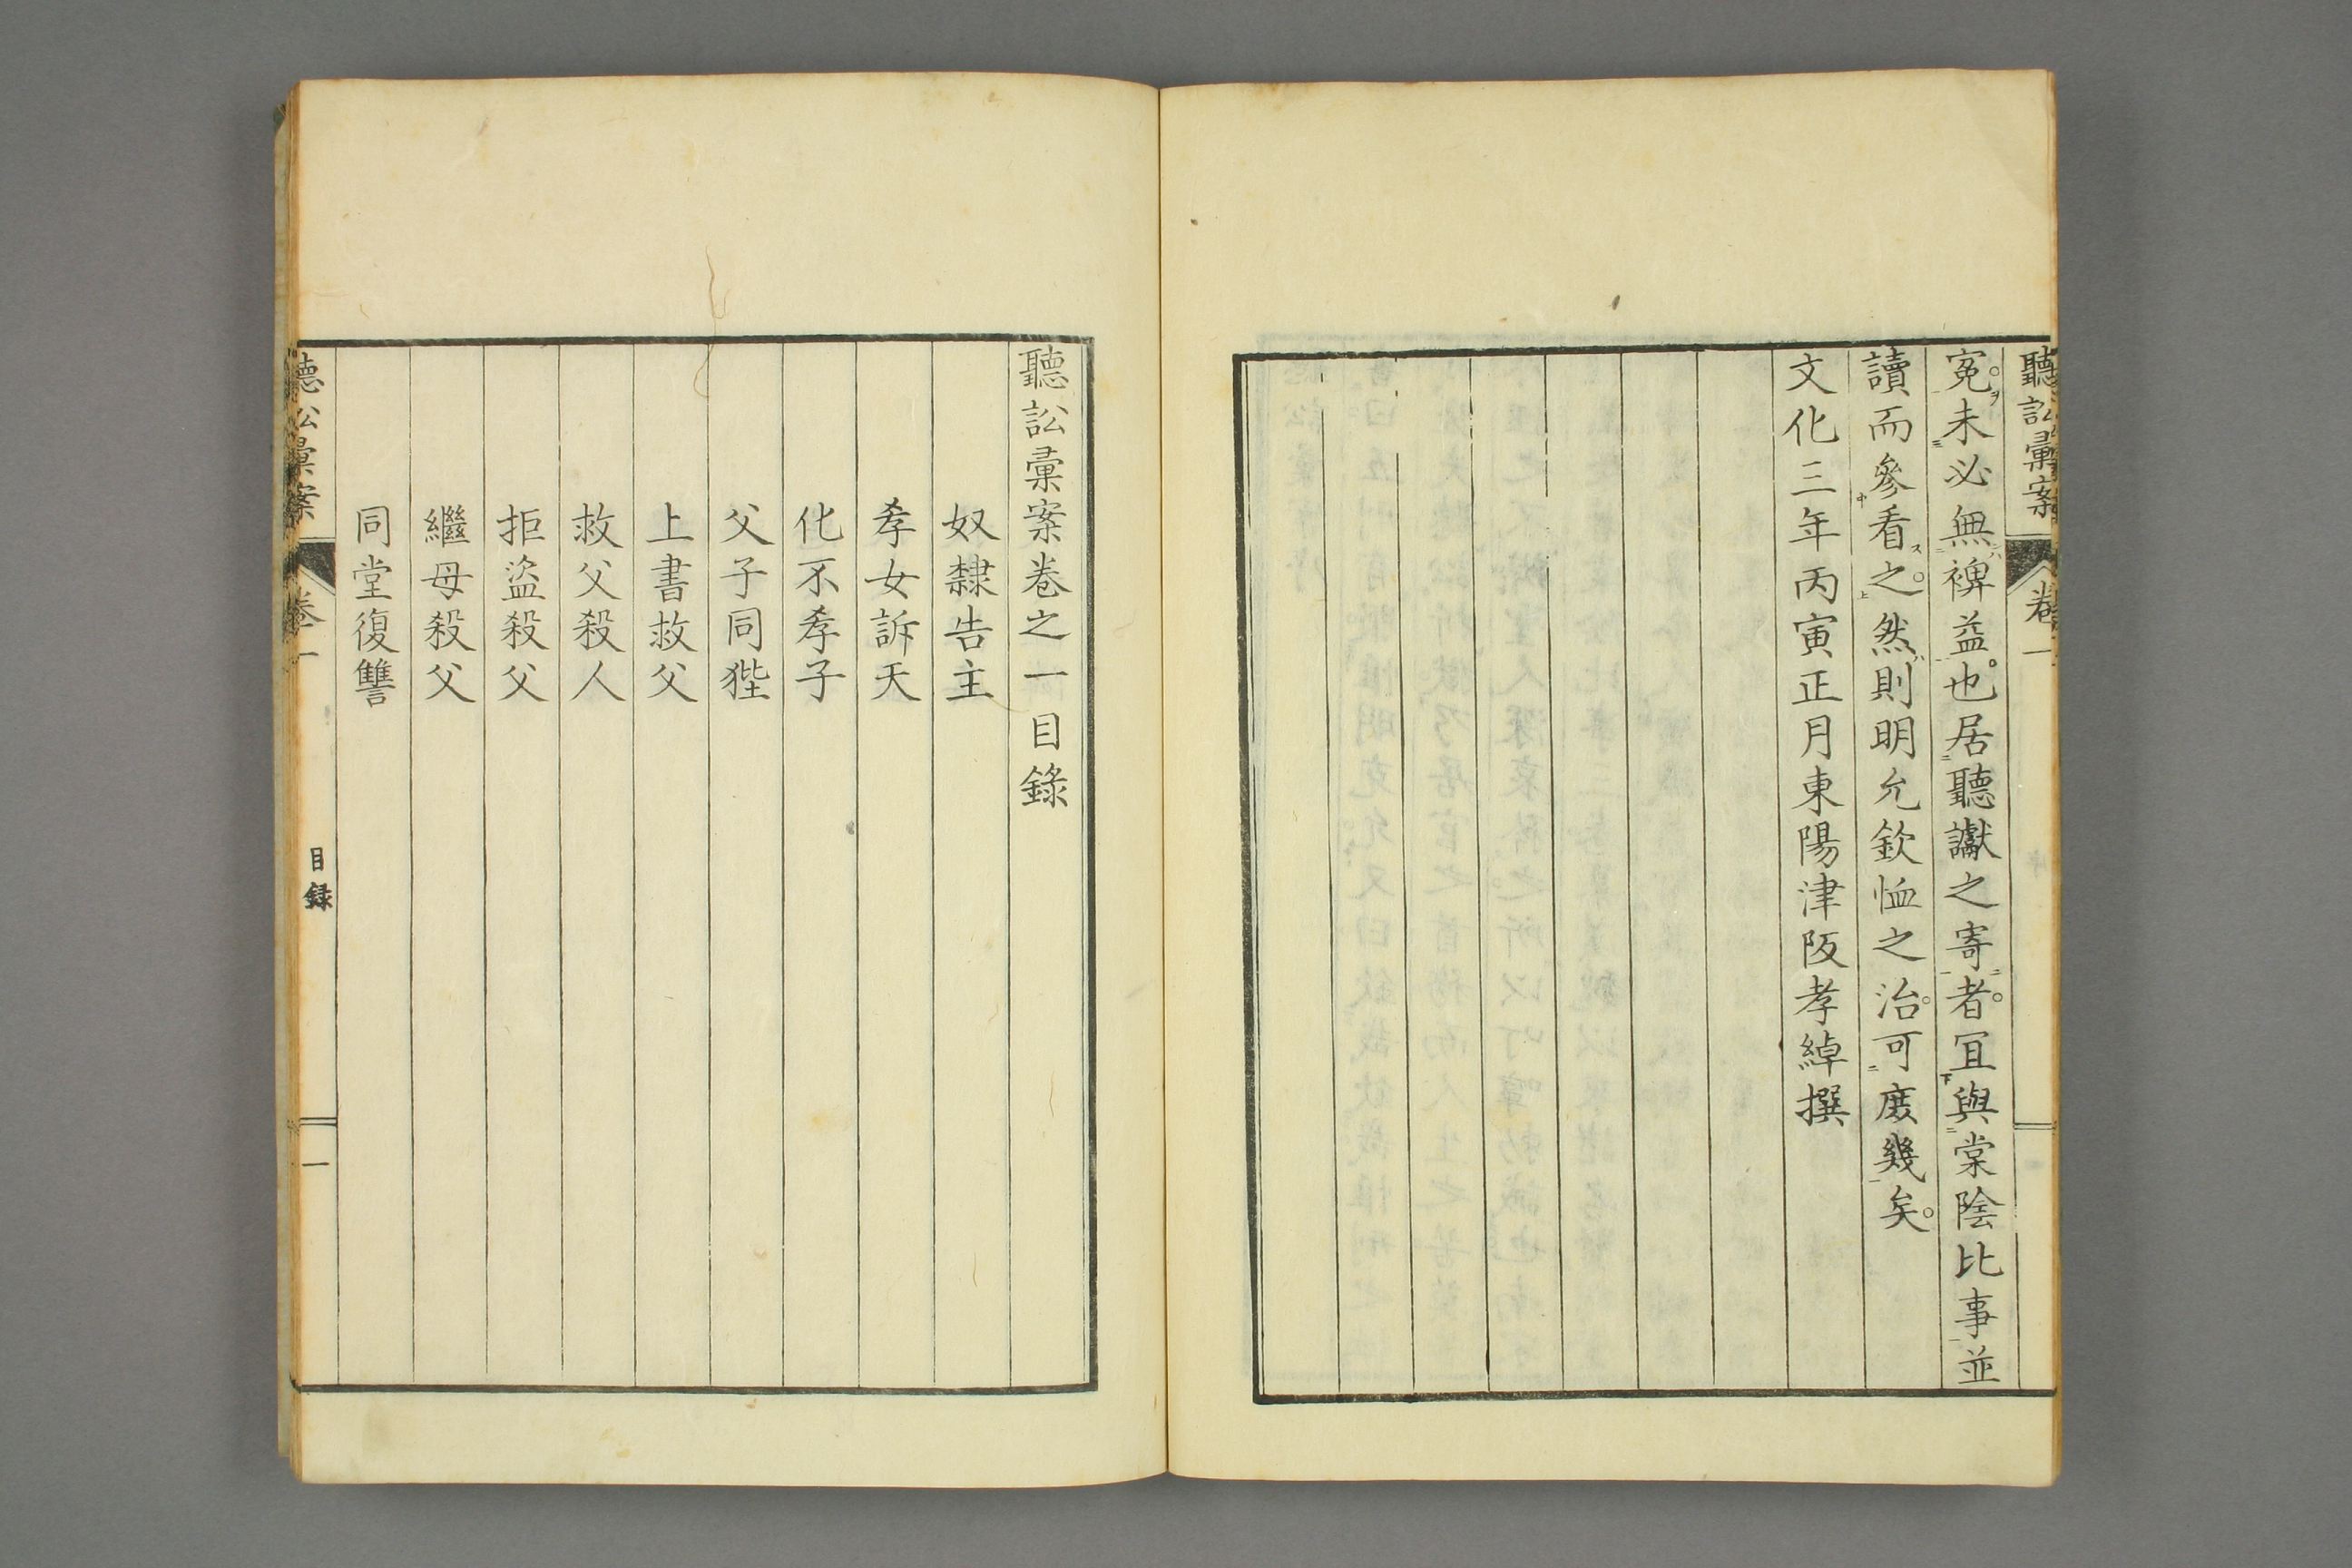 聽訟彙案 卷一
寃未必無裨益也居聽讞之寄者冝與棠陰比事並
讀而參看之然則明允欽恤之治可庶幾矣
文化三年丙寅正月東陽津阪孝綽撰
聽訟彙案卷之一目錄
奴隸告主
孝女訴天
化不孝子
父子同狴
上書救父
救父殺人
拒盜殺父
繼母殺父
同堂復讐
聽訟彙案 卷一 目録 一